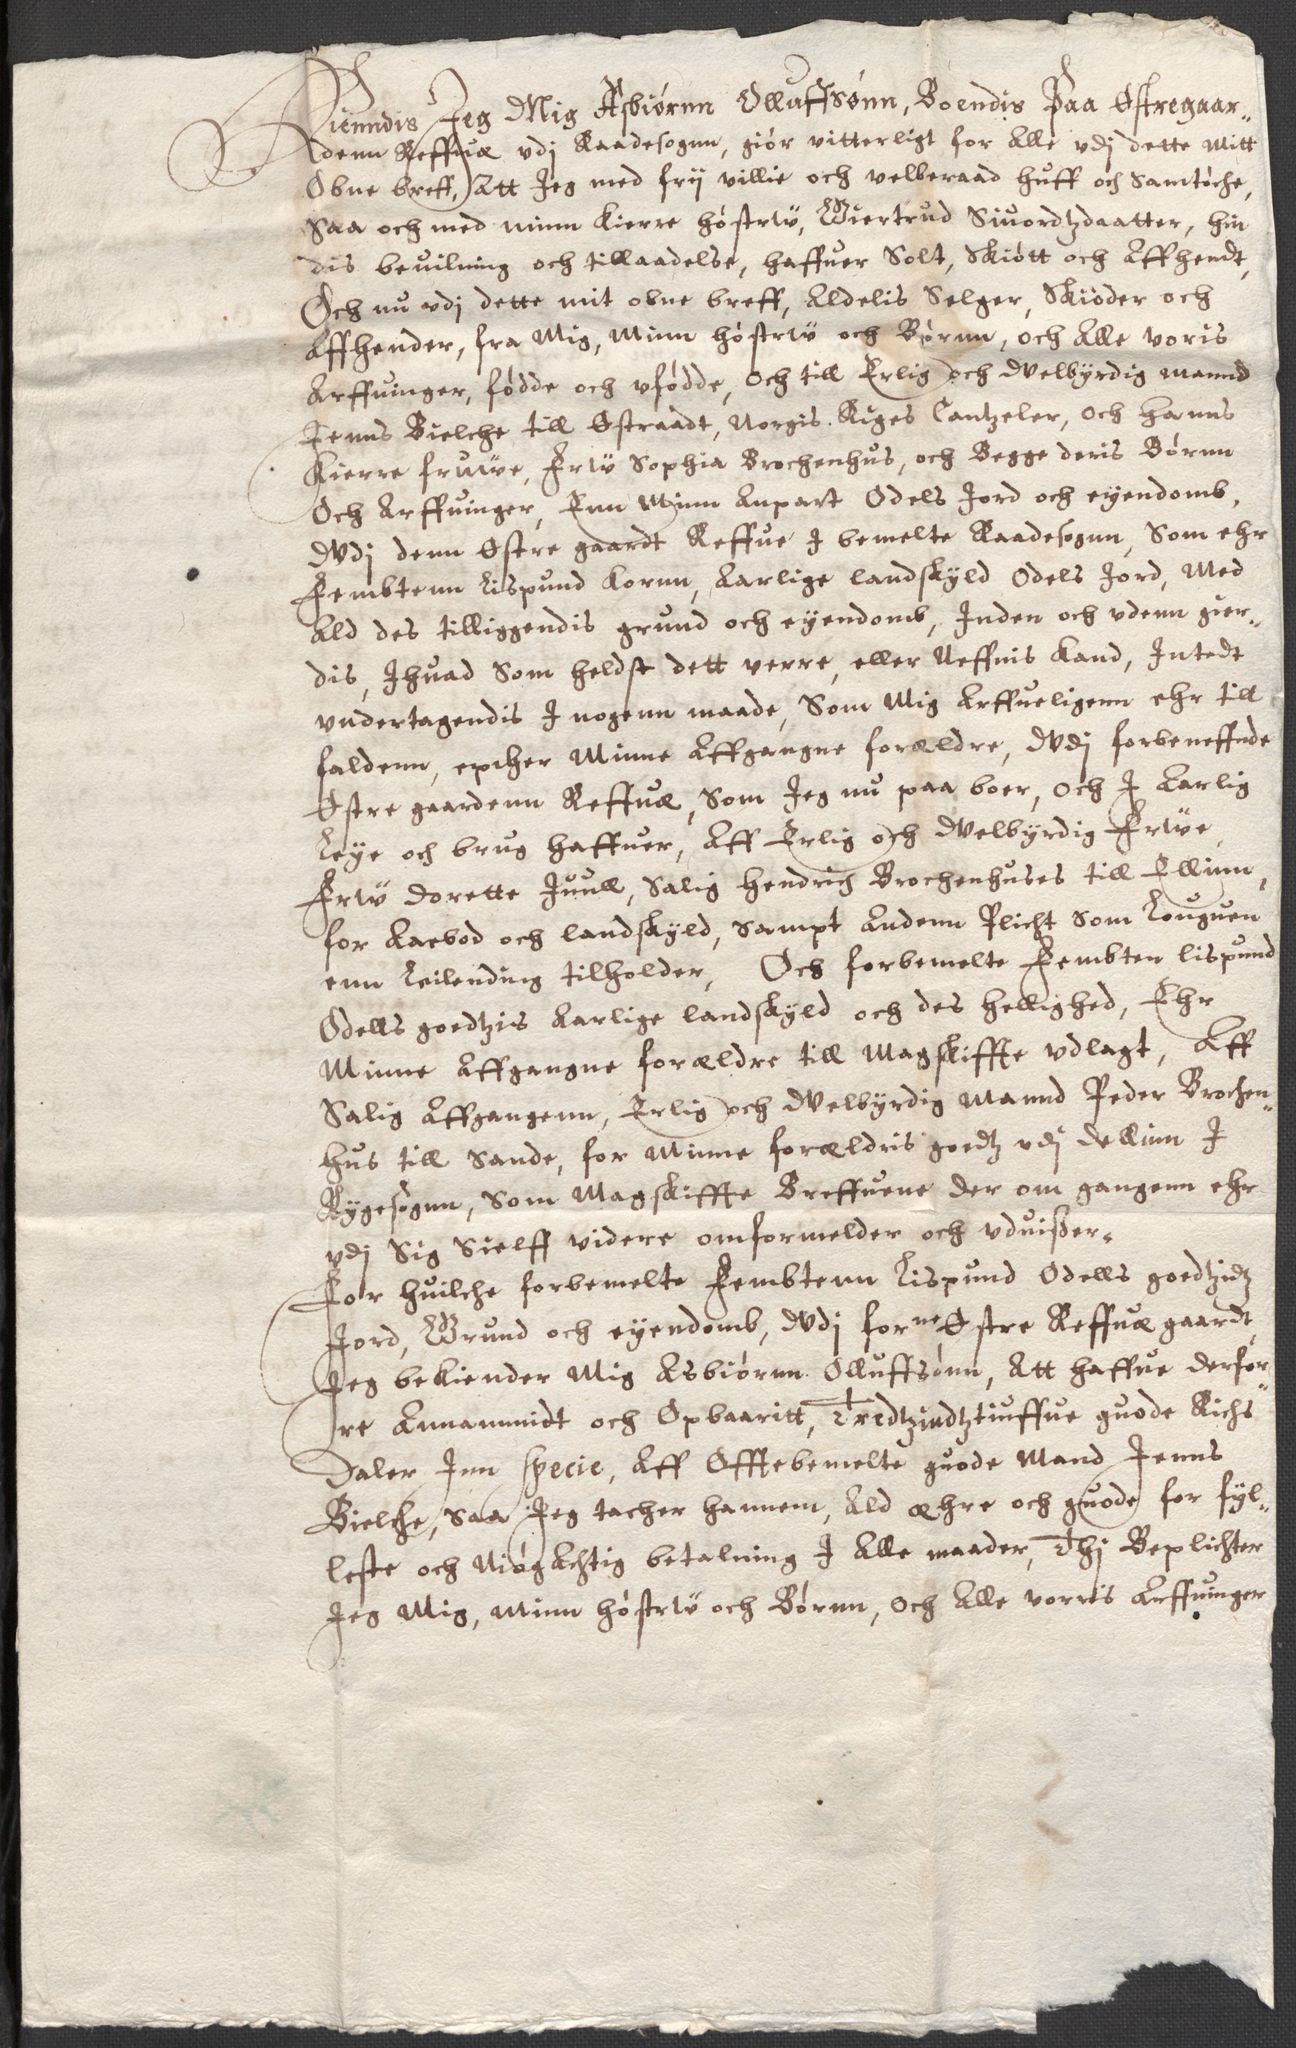 Kienndis Jeg Mig Asbiørnn Olluffsønn, Boendis Paa Østregaar-
denn Reffuæ vdj Raadesognn, giør vitterligt for Alle vdj dette Mitt
Obne breff, Att Jeg med frij villie och velberaad huff och Samtøche,
Saa och med minn kierre høstrw, Giertrud Siuordtzdaatter, hin
dis beuilning och tillaadelse, haffuer Solt, Skiøtt och Affhendt,
Och nu vdj dette mit obne breff, Aldelis Selger, Skiøder och
Affhender, fra Mig, Minn høstrw och Børnn, och Alle voris
Arffuinger, fødde och vfødde, och till Erlig och Welbyrdig mannd
Jenns Bielche till Østraadt, Norgis Riges Cantzeler, och hanns
kierre fruwe, Frw Sophia Brochenhus, och Begge deris Børnn
Och Arffuinger, Enn Minn Anpart Odels Jord och eyendomb,
Wdj denn Østre gaardt Reffue J bemelte Raadesognn, Som ehr
Fembtenn Lispund Kornn, Aarlige landskyld Odels Jord, Med
Ald des tilliggendis grund och eyendomb, Inden och vdenn gier-
dis, Ihuad Som heldst dett verre, eller Neffnis kand, Intedt
vndertagendis J nogenn maade, Som Mig Arffueligenn ehr till
faldenn, epther Minne Affgangne forældre, Wdj forbeneffnde
Østre gaardenn Reffuæ, Som Jeg nu paa boer, och J Aarlig
Leye och brug haffuer, Aff Erlig och Welbyrdig Frwe
Frw Dorette Juull, Salig Hendrich Brochenhuses till Ellinn,
for Aaevod och landskyld, Sampt Andenn Plicht Som Louguen
enn Leilending tilholder, Och forbemelte Fembten lispund
Odells goedtzis Aarlige landskyld och des hellighed, Ehr
Minne Affgangne forældre till Magskiffte vdlagt, Aff
Salig Affgangenn, Erlig och Welbyrdig Mannd Peder Brochen-
hus till Sande, for Minne forældris goedtz vdj Dellinn J
Rygesognn, Som Magskiffte Breffuene der om gangenn ehr
vdj Sig Sielff videre omformelder och vduisser.
For huilche forbemelte Fembtenn Lispund Odells goedtzidtz
Jord, Grund och eyendomb, Wdj forne Østre Reffuæ gaardt,
Jeg bekiender Mig Asbiørnn Olluffsønn, Att haffue derfor
re Annammidt och Opbaaritt, Tredtzindtztiuffue guode Richs
Daler Inn Specie, Aff Offtebemelte guode Mand Jenns
Bielche, Saa Jeg tacher hannem, Ald æhre och guode for fyl-
leste och Nøgachtig betalning J Alle maader, Thj Beplichter
Jeg Mig, Minn høstrw och Børnn, och Alle vorris Arffuinger